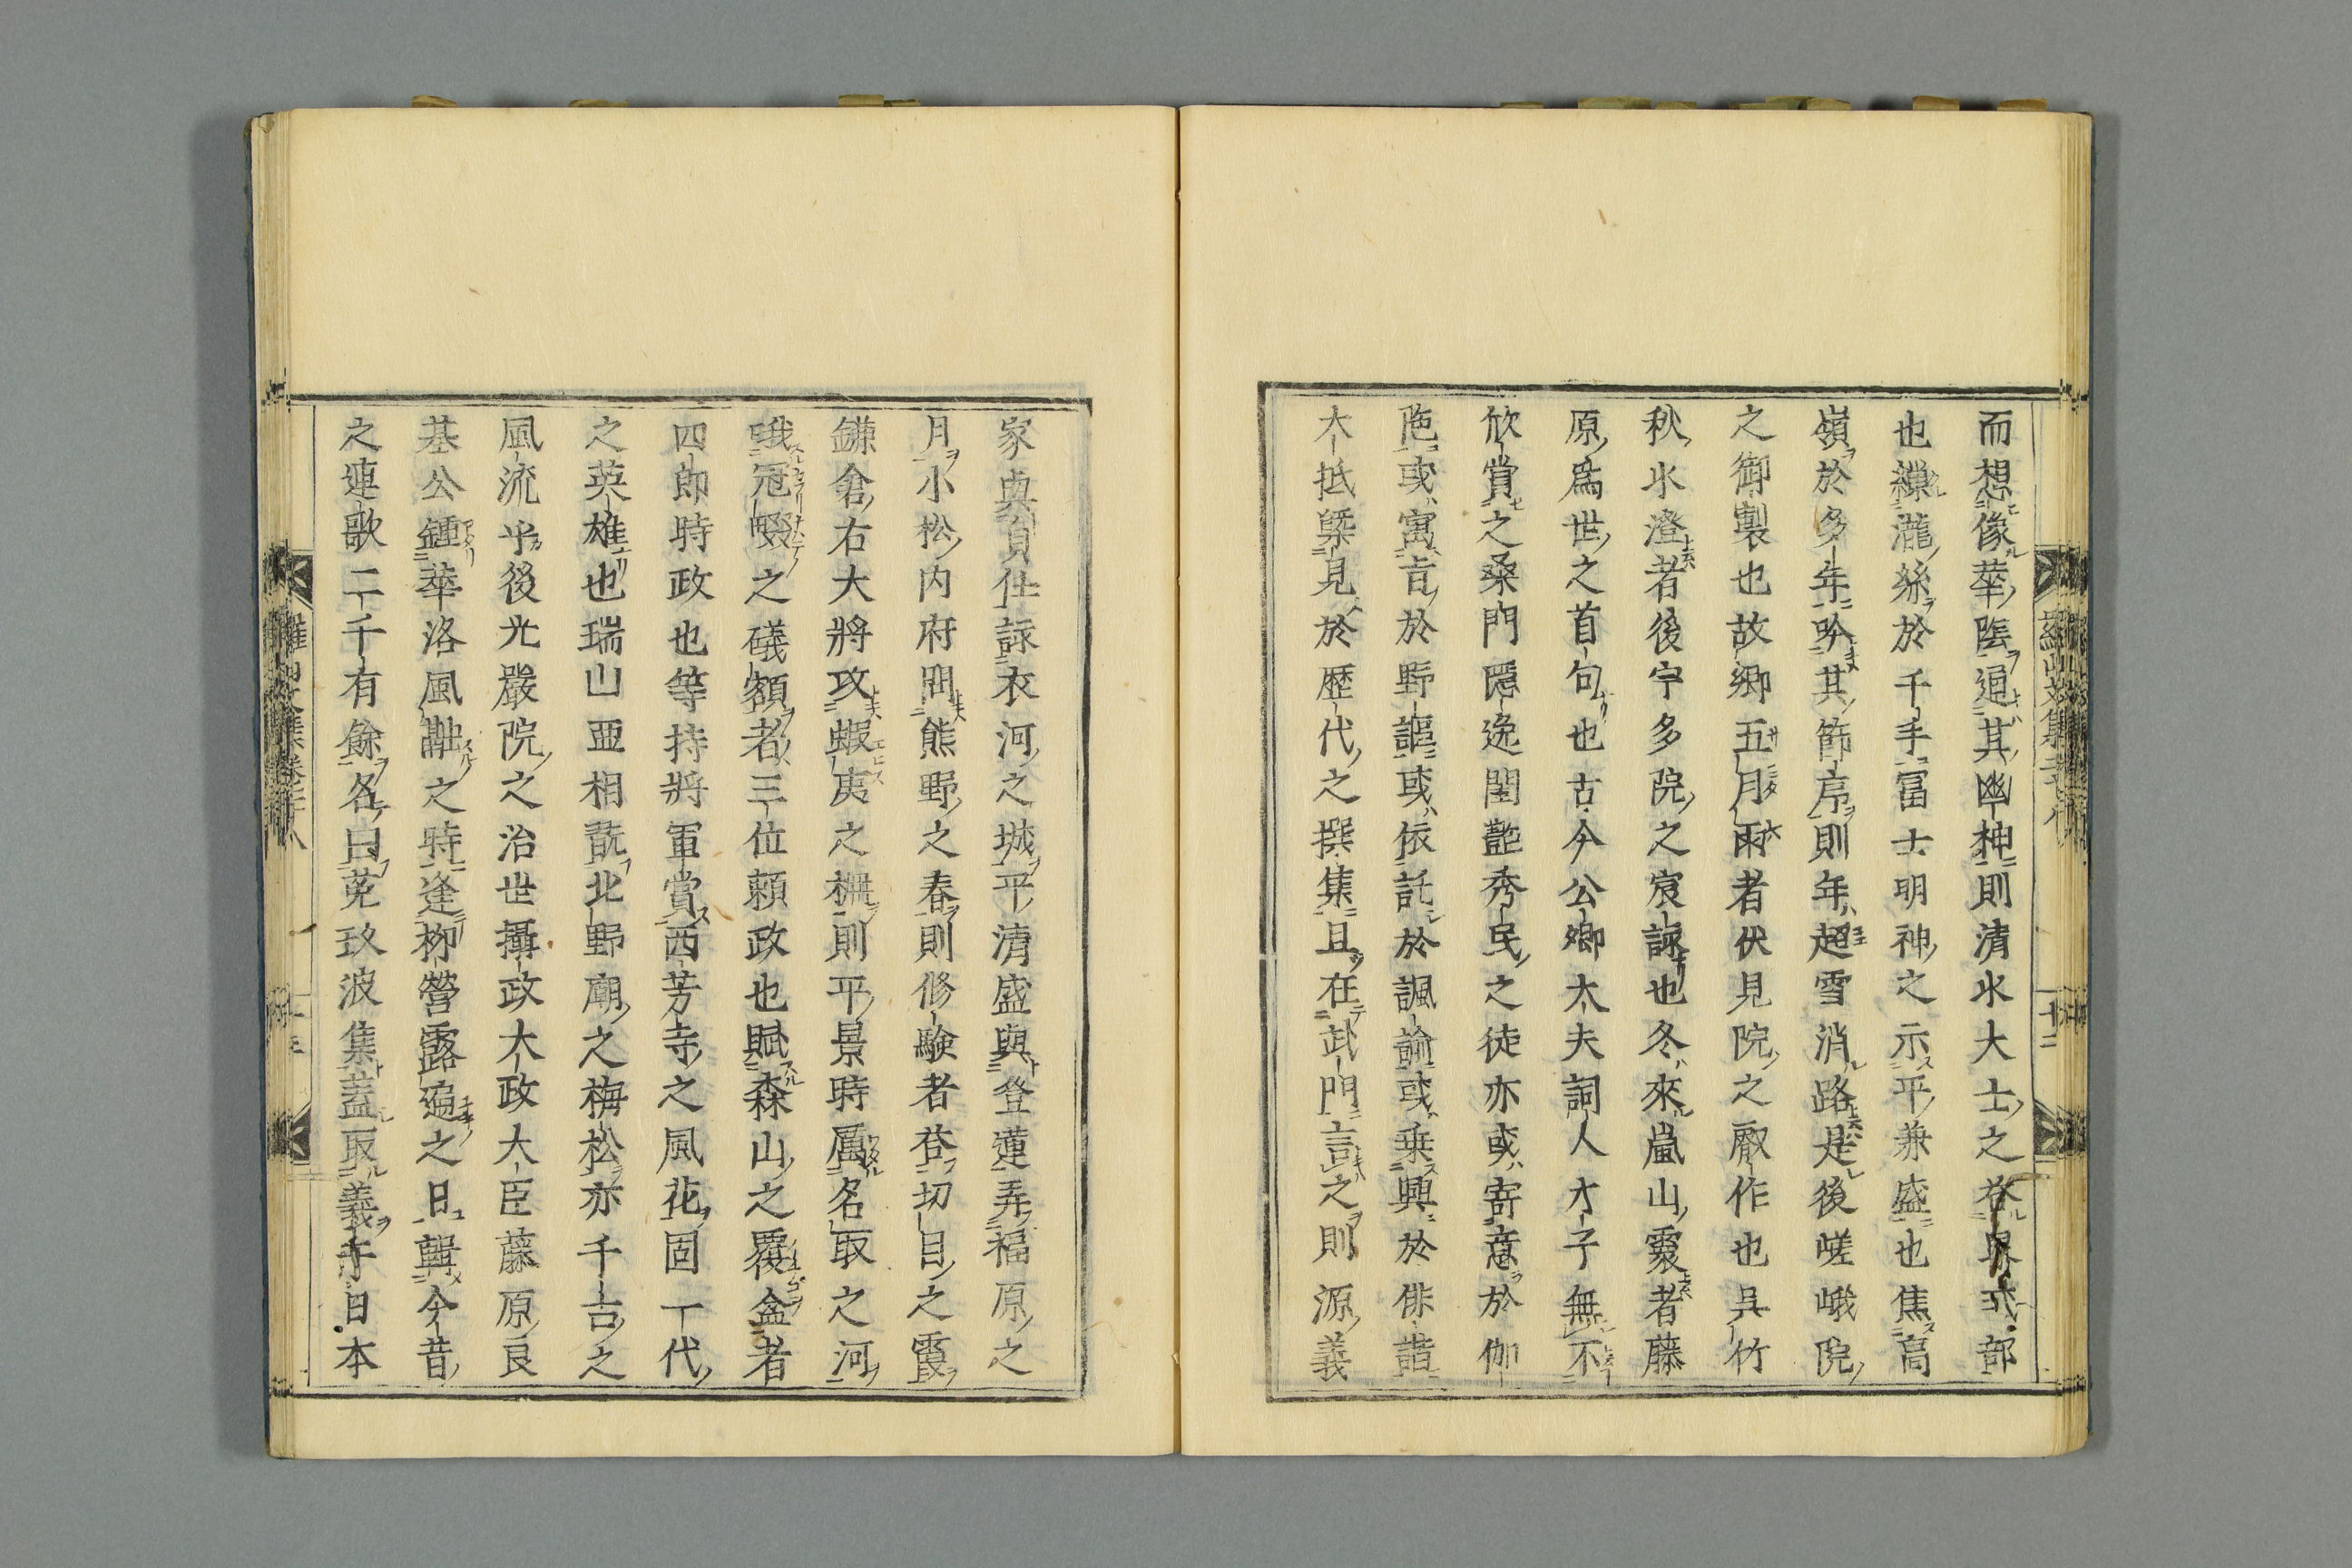 而想像華陰通其幽神則清水大士之答泉式部
也繰瀧絲於千手冨士明神之示平兼盛也焦高
嶺於多年吟其節序則年超雪消路是後嵯峨院
之御製也故郷五月雨者伏見院之厰作也呉竹
秋水澄者後宇多院之宸詠也冬來嵐山霙者藤
原爲世之首句也古今公卿大夫詞人才子無不
欣賞之桑門隱逸閨艷秀民之徒亦或寄意於伽
陁或寓言於野謳或依託於諷諭或乗興於俳諧
大抵槩見於歴代之撰集且在武門言之則源義
家與貞任詠衣河之城平清盛與登蓮弄福原之
月小松内府問熊野之春則修驗者荅切目之霞
鎌倉右大將攻蝦夷之柵則平景時属名取之河
哦冠畷之礒額者三位頼政也賦森山之覆盆者
四郎時政也等持將軍賞西芳寺之風花固一代
之英雄也瑞山亜相翫北野廟之梅松亦千古之
風流乎後光嚴院之治世攝政大政大臣藤原良
基公鍾華洛風黜之時逢栁營露遍之日輯今昔
之連歌二千有餘名曰莬玖波集盖取義於日本